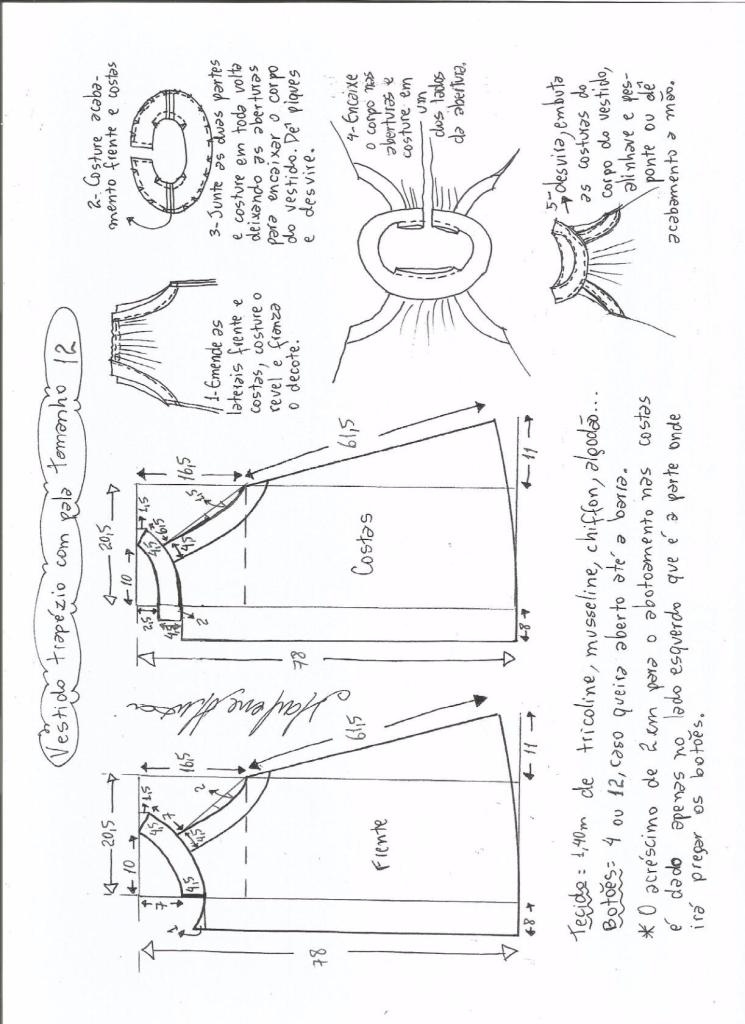 Vestido trapézio com pala tamanho 12
20,5
10
1,5
4,5
7
4,5
4,5
7
16,5
2
61,5
78
Frente
8
11
20,5
10
4,5
4,5
6,5
2,5
4,5
2
4,5
4,5
16,5
61,5
78
Costas
8
11
1-Emende as
laterais frente e
costas, costure o
revel e franza
o decote.
2-Costure acaba-
mento frente e costas
3-Junte as duas partes
e costure em toda volta
deixando as aberturas
para encaixar o corpo
do vestido. Dê piques
e desvire.
4-Encaixe
o corpo nas
aberturas e
costure em
um
dos lados
da abertura.
5-desvira, embuta
as costuras do
corpo do vestido,
alinhave e pes-
ponte ou dê
acabamento a mão.
Tecido= 1,40m de tricoline, musseline, chiffon, algodão...
Botões= 4 ou 12, caso queira aberto até a barra.
* O acréscimo de 2cm para o abotoamento nas costas
é dado apenas no lado esquerdo que é a parte onde
irá pregar os botões.